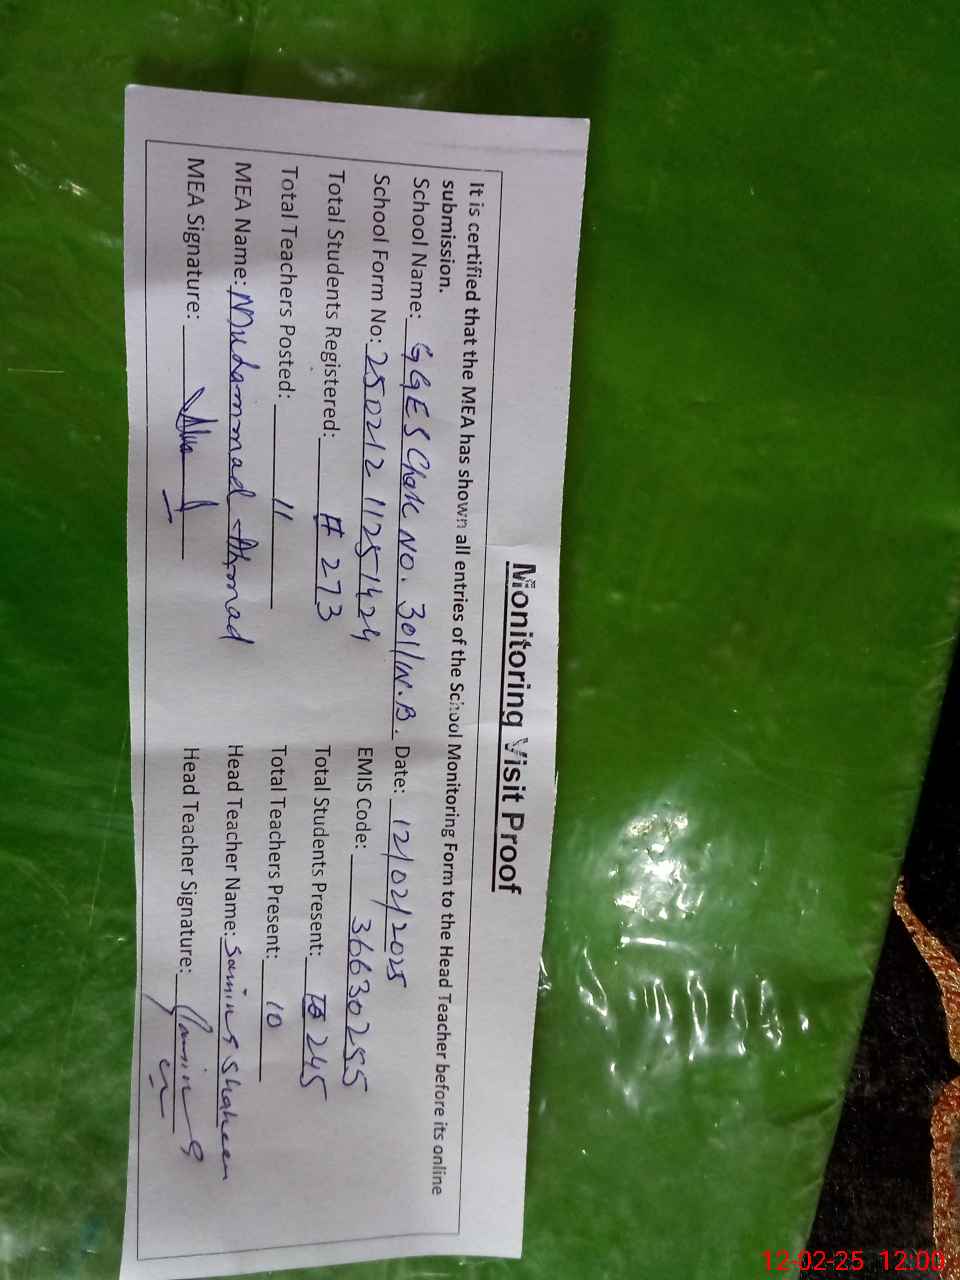 Monitoring Visit Proof
It is certified that the MEA has shown all entries of the School Monitoring Form to the Head Teacher before its online
submission.
School Name: GGES Chak No. 301/W.B. Date: 12/02/2025
School Form No: 250212 11251424 EMIS Code: 36630255
Total Students Registered: 273 Total Students Present: 245
Total Teachers Posted: 11 Total Teachers Present: 10
MEA Name: Muhammad Ahmad Head Teacher Name: Samina Shaheen
MEA Signature: Head Teacher Signature:
12-02-25 12:00